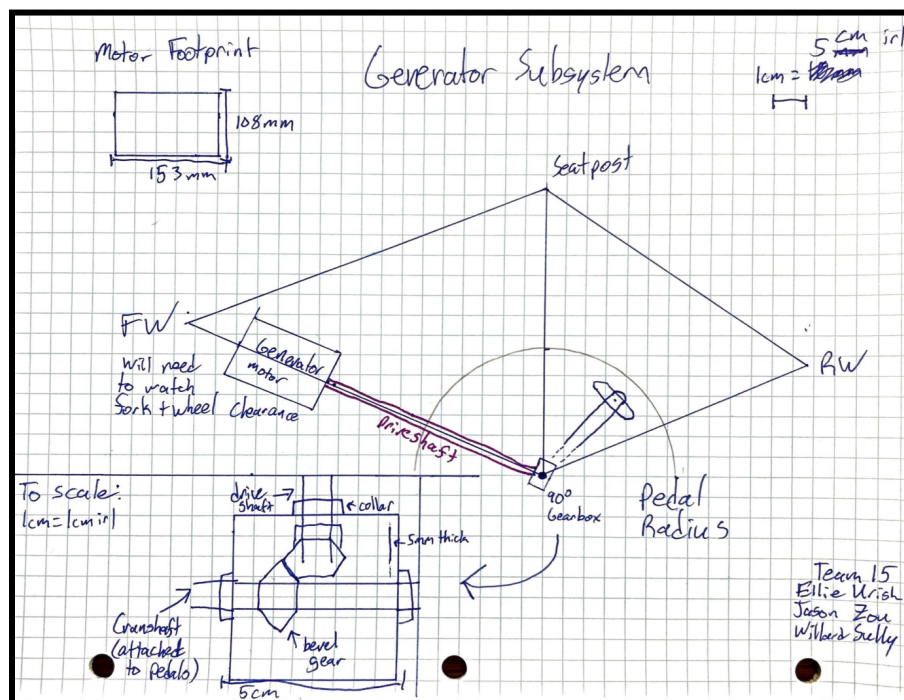 Motor Footprint
108mm
153mm
Generator Subsystem
5 cm irl
1cm =
Seatpost
FW
RW
Generator
motor
will need
to watch
fork + wheel clearance
Driveshaft
90°
Gearbox
Pedal
Radius
To scale:
1cm=1cm irl
drive
shaft
collar
5mm thick
Crankshaft
(attached
to pedals)
bevel
gear
5cm
Team 15
Ellie Urish
Jason Zou
Willard Sully